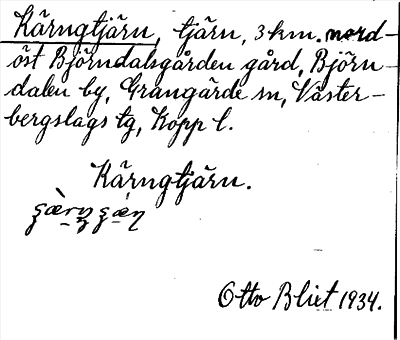 Kärngtjärn, tjärn, 3 km. nord-
öst Björndalsgården gård, Björn-
dalen by, Grangärde sn, Väster-
bergslags tg, Kopp l.
Kärngtjärn.
Otto Blixt 1934.